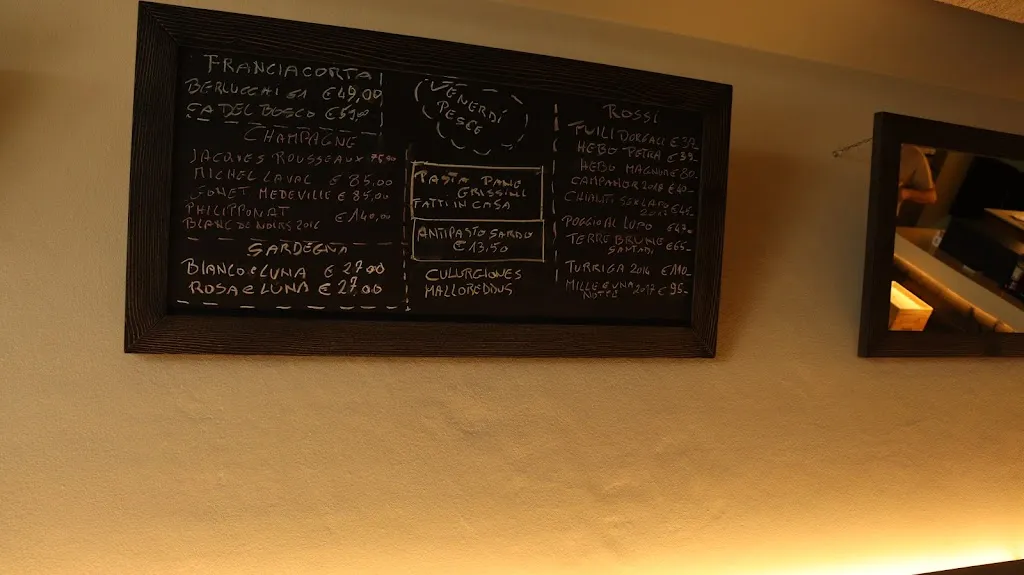 FRANCIACORTA
BERLUCCHI 61 € 49,00
CA DEL BOSCO € 59,00
CHAMPAGNE
JACQUES ROUSSEAUX 75,00
MICHEL LAVAL € 85,00
GONET MEDEVILLE € 85,00
PHILIPPONAT
€ 140,00
BLANC DE NOIRS 2016
SARDEGNA
BIANCO e LUNA € 27,00
ROSA e LUNA € 27,00
VENERDÍ
PESCE
PASTA PANE
GRISSINI
FATTI IN CASA
ANTIPASTO SARDO
€ 13,50
CULURGIONES
MALLOREDDUS
ROSSI
HEBO PETRA € 39-
HEBO MAGNUM € 80-
CAMPANOR 2018 € 40-
CHIANTI
POGGIO AL LUPO € 47-
TERRE BRUNE € 65-
SANTADI
TURRIGA 2016 € 110-
MILLE e UNA 2017 € 95-
NOTTE